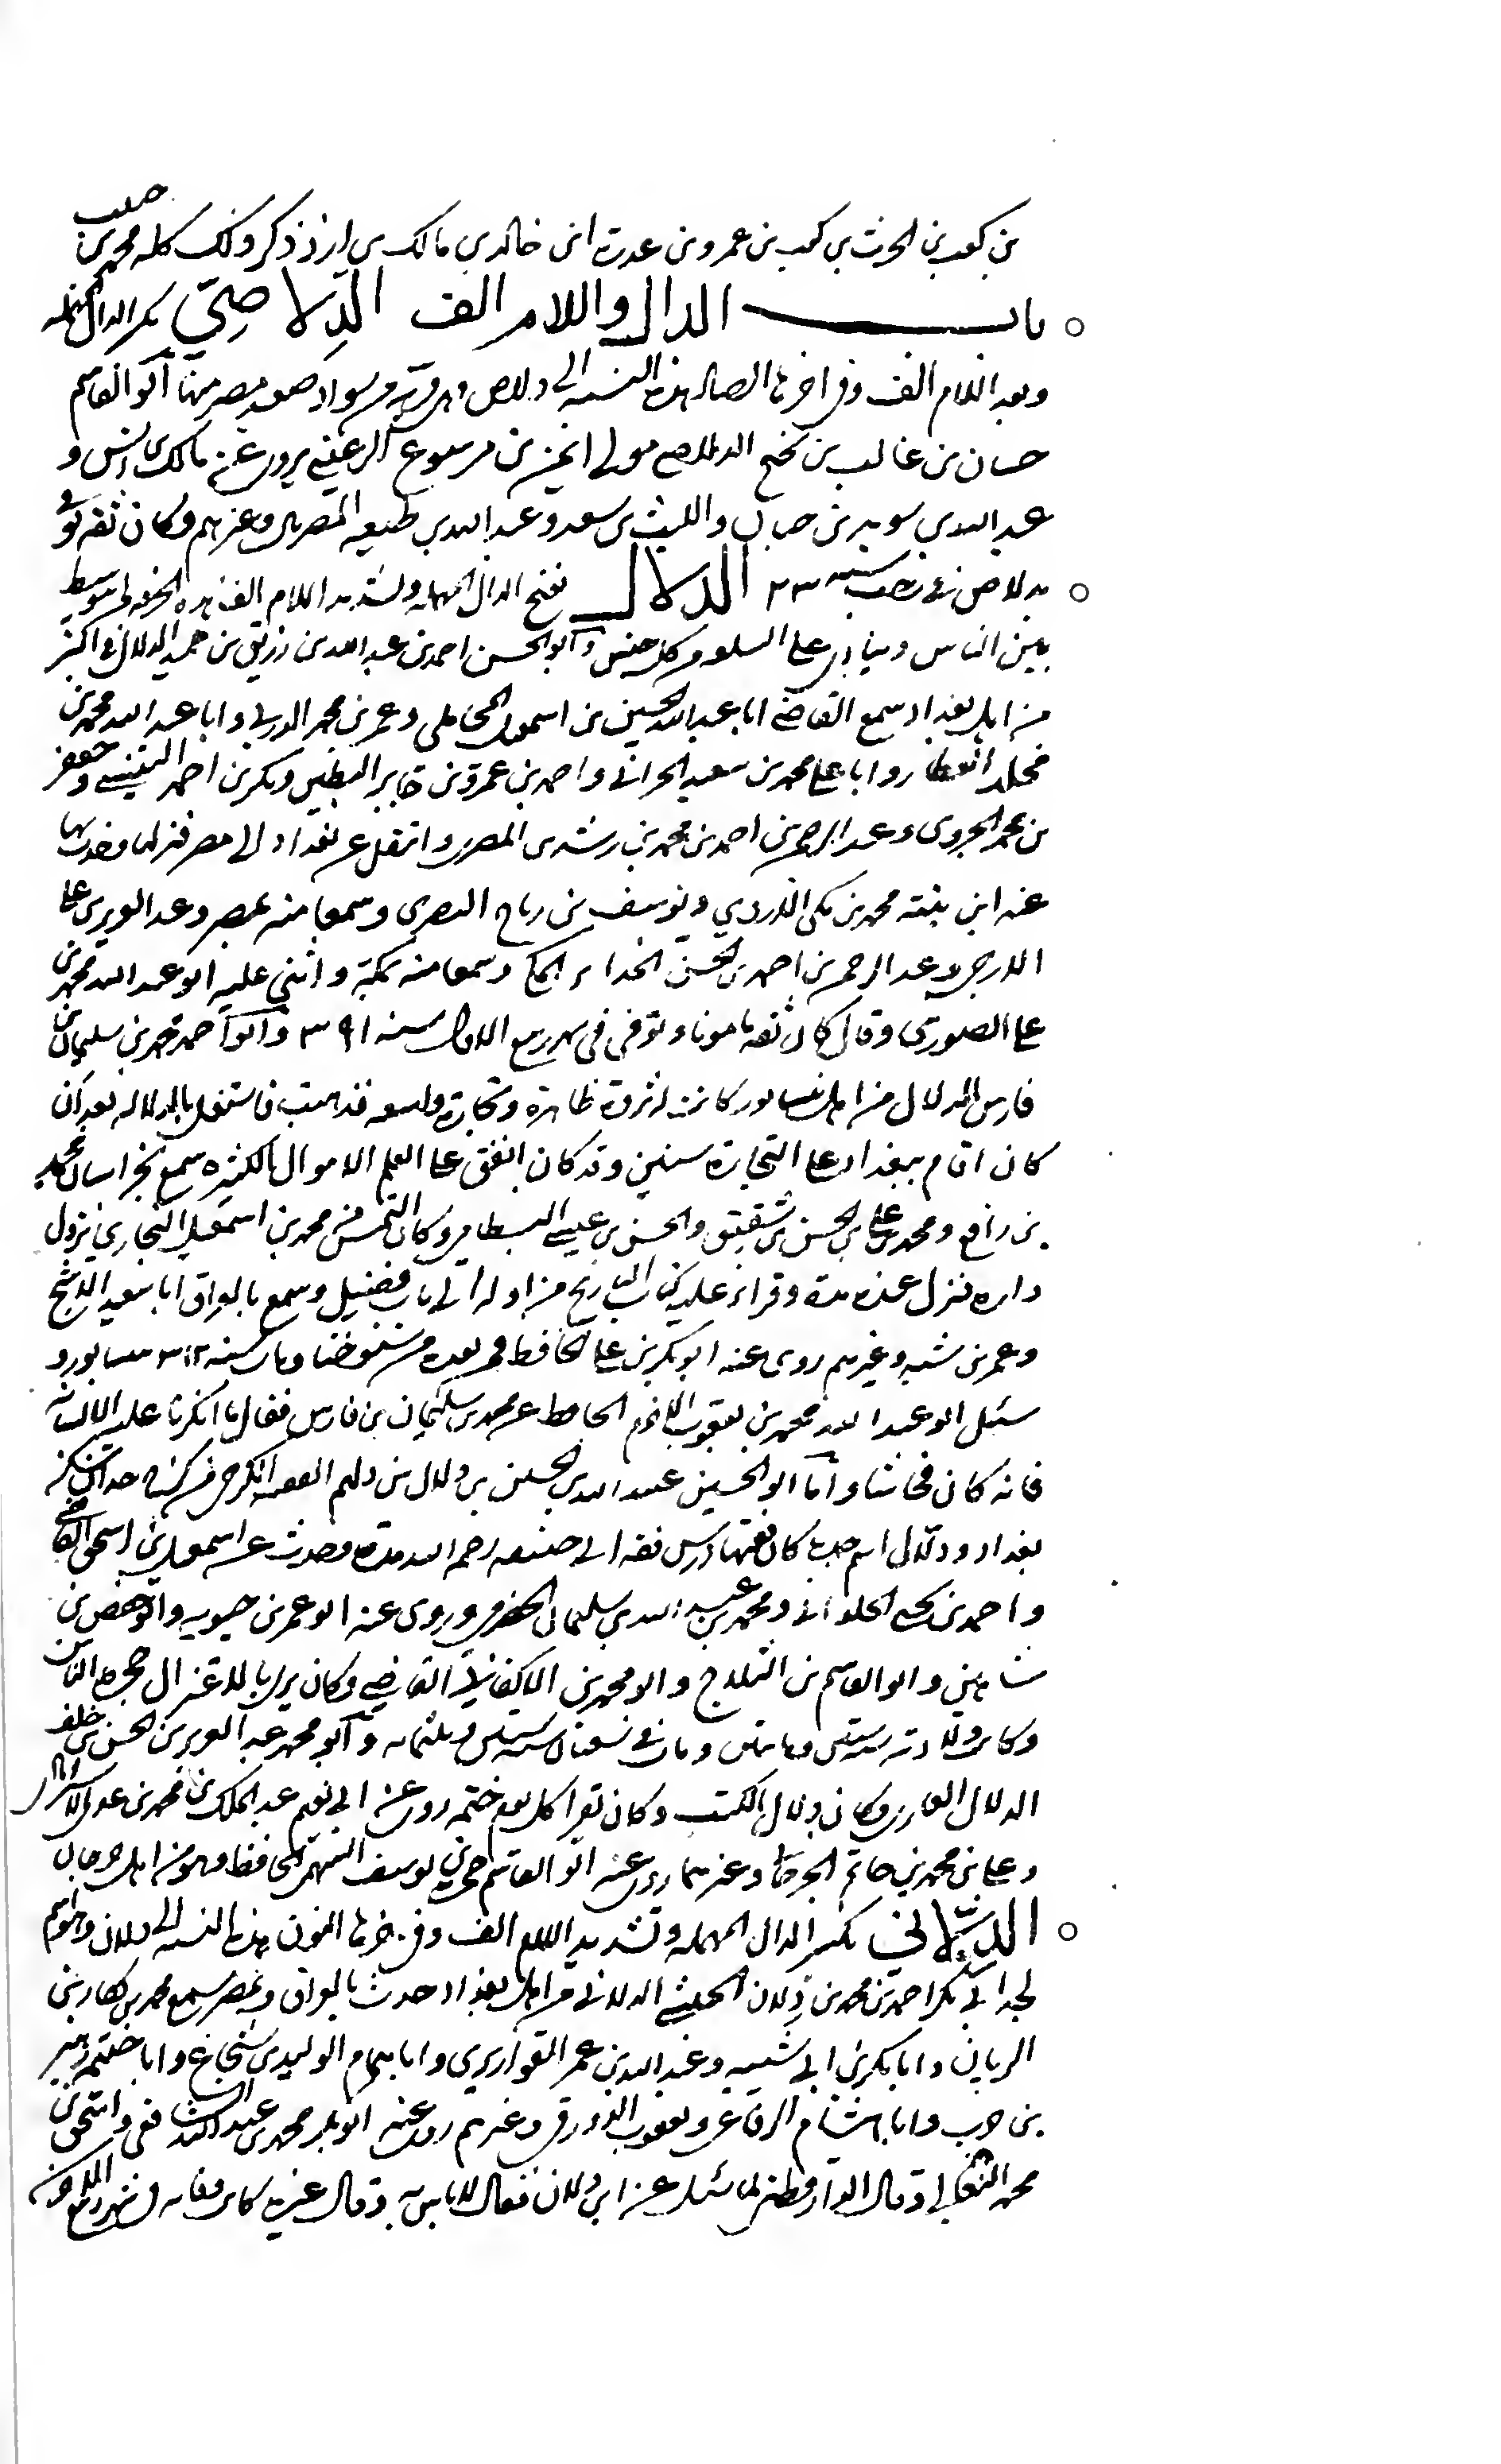 بن كعب بن الحرث بن كعب بن عمرو بن عدية ابن خالد بن مالك بن ازد ذكر ذلك كله محمد بن حبيب
باب الدال واللام الف الدِلاصِيّ بكسر الدال المهملة
وبعد اللام الف وفى اخرها الصاد هذه النسبه الى دلاص وهى قرية من سواد صعيد مصر منها ابو القاسم
حسان بن غالب بن نجيح الدلاصى مولى ايمن بن مرسوع الرعينى يروى عن مالك بن انس و
عبد الله بن سويد بن حيان والليث بن سعد وعبد الله بن لهيعه المصريين وغيرهم وكان ثقه توفى
بدلاص فى رجب سنه ٢٣ الدلال بفتح الدال المهمله وتشديد اللام الف هذه الحرفه لمن يتوسط
بين الناس وينادى على السلع من كل جنس وابو الحسن احمد بن عبد الله بن رزيق بن حميد الدلال فى اكثر
من اهل بغداد سمع القاضى ابا عبد الله الحسين بن اسمعيل المحاملى وعمر بن محمد الدربى وابا عبد الله محمد بن
مخلد العطار وابا على محمد بن سعيد الحرانى واحمد بن عمرو بن جابر البطين وبكر بن احمد التنيسى وجعفر
بن محمد الجروى وعبد الرحمن بن احمد بن محمد بن رشدين المصرى وانتقل عن بغداد الى مصر فنزلها وحدث بها
عنه ابن بنته محمد بن مكى الازدى ويوسف بن رباح البصرى وسمعا منه بمصر وعبد العزيز بن على
الازجى وعبد الرحمن بن احمد بن الحسن الحداء بمكة وسمعا منه بمكة واثنى عليه ابو عبد الله محمد بن
على الصورى وقال كان ثقه مامونا وتوفى فى شهر ربيع الاول سنه ٣٩١ وابو احمد محمد بن سليمان بن
فارس الدلال من اهل نيسابور كانت له ثروة ظاهرة وتجارة واسعه فذهبت فاشتغل بالدلاله بعد ان
كان اقام ببغداد على التجارة سنين وقد كان انفق على العلم الاموال الكثيره سمع بخراسان محمد
بن رافع ومحمد بن على بن الحسن بن شقيق والحسن بن عيسى البسطامى وكان التمس من محمد بن اسمعيل البخارى نزول
داره فنزل عنده مدة وقرا عليه كتاب التاريخ من اوله الى باب فضيل وسمع بالعراق ابا سعيد الاشج
وعمر بن شبه وغيرهم روى عنه ابو بكر بن على الحافظ فمن بعده من شيوخنا ومات سنه ٣١٢ بنيسابور و
سئل ابو عبد الله محمد بن يعقوب الاخرم الحافظ عن محمد بن سليمان بن فارس فقال ما انكرنا عليه الا لسانه
فانه كان فحاشا واما ابو الحسين عبيد الله بن الحسين بن دلال بن دلهم الفقيه الكرخى من كرخ جدان سكن
بغداد ودلال اسم جده كان فقيها درس فقه ابى حنيفه رحمه الله مدة وحدث عن اسمعيل بن اسحق القاضى
واحمد بن يحيى الحلوانى ومحمد بن عبد الله بن سليمان الحضرمى وروى عنه ابو عمر بن حيويه وابو حفص بن
شاهين وابو القاسم بن الثلاج وابو محمد بن الاكفانى القاضى وكان يرى بالاعتزال هجره الناس
وكانت ولادته سنه ستين ومائتين ومات فى شعبان سنه اربعين وثلثمائه وابو محمد عبد العزيز بن الحسن بن خلف
الدلال القارى وكان دلال الكتب وكان يقرا كل يوم ختمه روى عن ابى نعيم عبد الملك بن محمد بن عدى الاستراباذى
وعلى بن محمد بن حاتم الجرجانى وغيرهما روى عنه ابو القاسم حمزه بن يوسف السهمى الحافظ وهو من اهل جرجان
الدِلّانى بكسر الدال المهمله وتشديد اللام الف وفى اخرها النون هذه النسبه الى دلان وهو اسم
لجد ابى بكر احمد بن محمد بن دلان الخيشى الدلانى من اهل بغداد حدث بالعراق وبمصر سمع محمد بن بكار بن
الريان وابا بكر بن ابى شيبه وعبيد الله بن عمر القواريرى وابا همام الوليد بن شجاع وابا خيثمه زهير
بن حرب وابا هشام الرفاعى ويعقوب الدورقى وغيرهم روى عنه ابو بكر محمد بن عبد الله الشافعى واسحق بن
محمد النعالى وقال الدارقطنى لما سئل عن ابن دلان فقال لا باس به وقال غيره كانت وفاته فى شهر ربيع الاخر